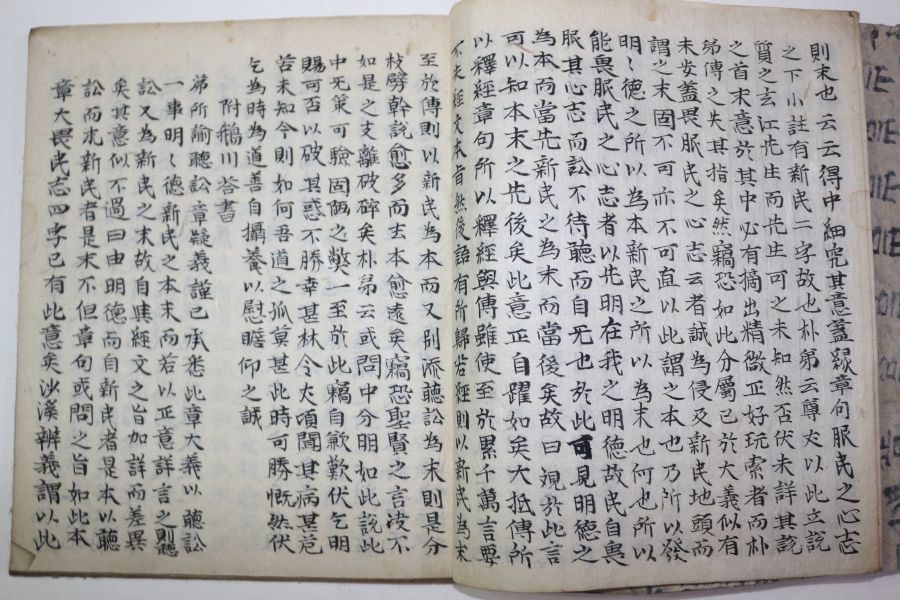 則末也云云得中細究其意蓋緣章句服民之心志
之下小註有新民二字故也朴弟云尊丈以此立說
質之玄江先生而先生可之未知然否伏未詳其說
之首末意於其中必有摘出精微正好玩索者而朴
弟傳之失其指矣然竊恐如此分屬已於大義似有
未安蓋畏服民之心志云者誠為侵及新民地頭而
謂之末固不可亦不可直以此謂之本也乃所以發
明明德之所以為本新民之所以為末也何也所以
能畏服民之心志者以先明在我之明德故民自畏
服其心志而訟不待聽而自无也於此可見明德之
為本而當先新民之為末而當後矣故曰觀於此言
可以知本末之先後矣此意正自躍如矣大抵傳所
以釋經章句所以釋經與傳雖使至於累千萬言要
不失經文本旨然後語有所歸若經則以新民為末
至於傳則以新民為本而又別添聽訟為末則是分
枝劈幹說愈多而去本愈遠矣竊恐聖賢之言決不
如是之支離破碎矣朴弟云或問中分明如此說此
中无策可驗固陋之弊一至於此竊自歎歎伏乞明
賜可否以破其惑不勝幸甚林令丈頃聞其病甚危
苦未知今則如何吾道之孤莫甚此時可勝慨然伏
乞為時為道善自攝養以慰瞻仰之誠
附鵝川答書
弟所諭聽訟章疑義謹已承悉此章大義以聽訟
一事明明德新民之本末而若以正意詳言之則聽
訟又為新民之末故自與經文之旨加詳而差異
矣其意似不過曰由明德而自新民者是本以聽
訟而求新民者是末不但章句或問之旨如此本
章大畏民志四字已有此意矣沙溪辨義謂以此